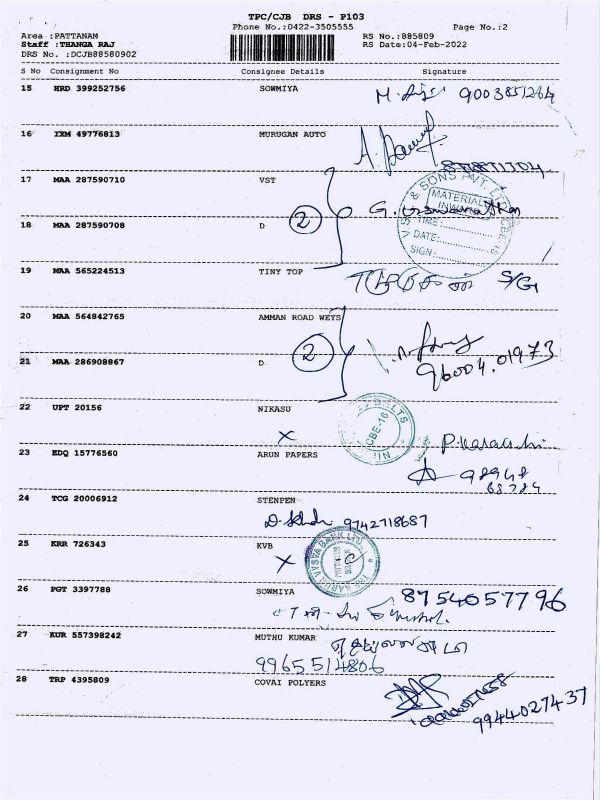 TPC/CJB DRS - P103
Phone No.:0422-3505555 Page No.:2
Area :PATTANAM RS No.:885809
Staff :THANGA RAJ RS Date:04-Feb-2022
DRS No. :DCJB88580902
S No Consignment No Consignee Details Signature
15 HRD 399252756 SOWMIYA 9003851264
16 IXM 49776813 MURUGAN AUTO
17 MAA 287590710 VST
& SONS PVT. LTD
MATERIAL
INWARD
TIME:
DATE:
SIGN:
2
18 MAA 287590708 D
19 MAA 565224513 TINY TOP S/G
20 MAA 564842765 AMMAN ROAD WEYS
2
96004.01973
21 MAA 286908867 D
22 UPT 20156 NIKASU
X
BELTS
CBE-16
23 EDQ 15776560 ARUN PAPERS
98948
68784
24 TCG 20006912 STENPEN
9742718687
25 KRR 726343 KVB
X
VYSYA BANK LTD
26 PGT 3397788 SOWMIYA 8754057796
27 KUR 557398242 MUTHU KUMAR
9965514806
28 TRP 4395809 COVAI POLYERS
9944027437